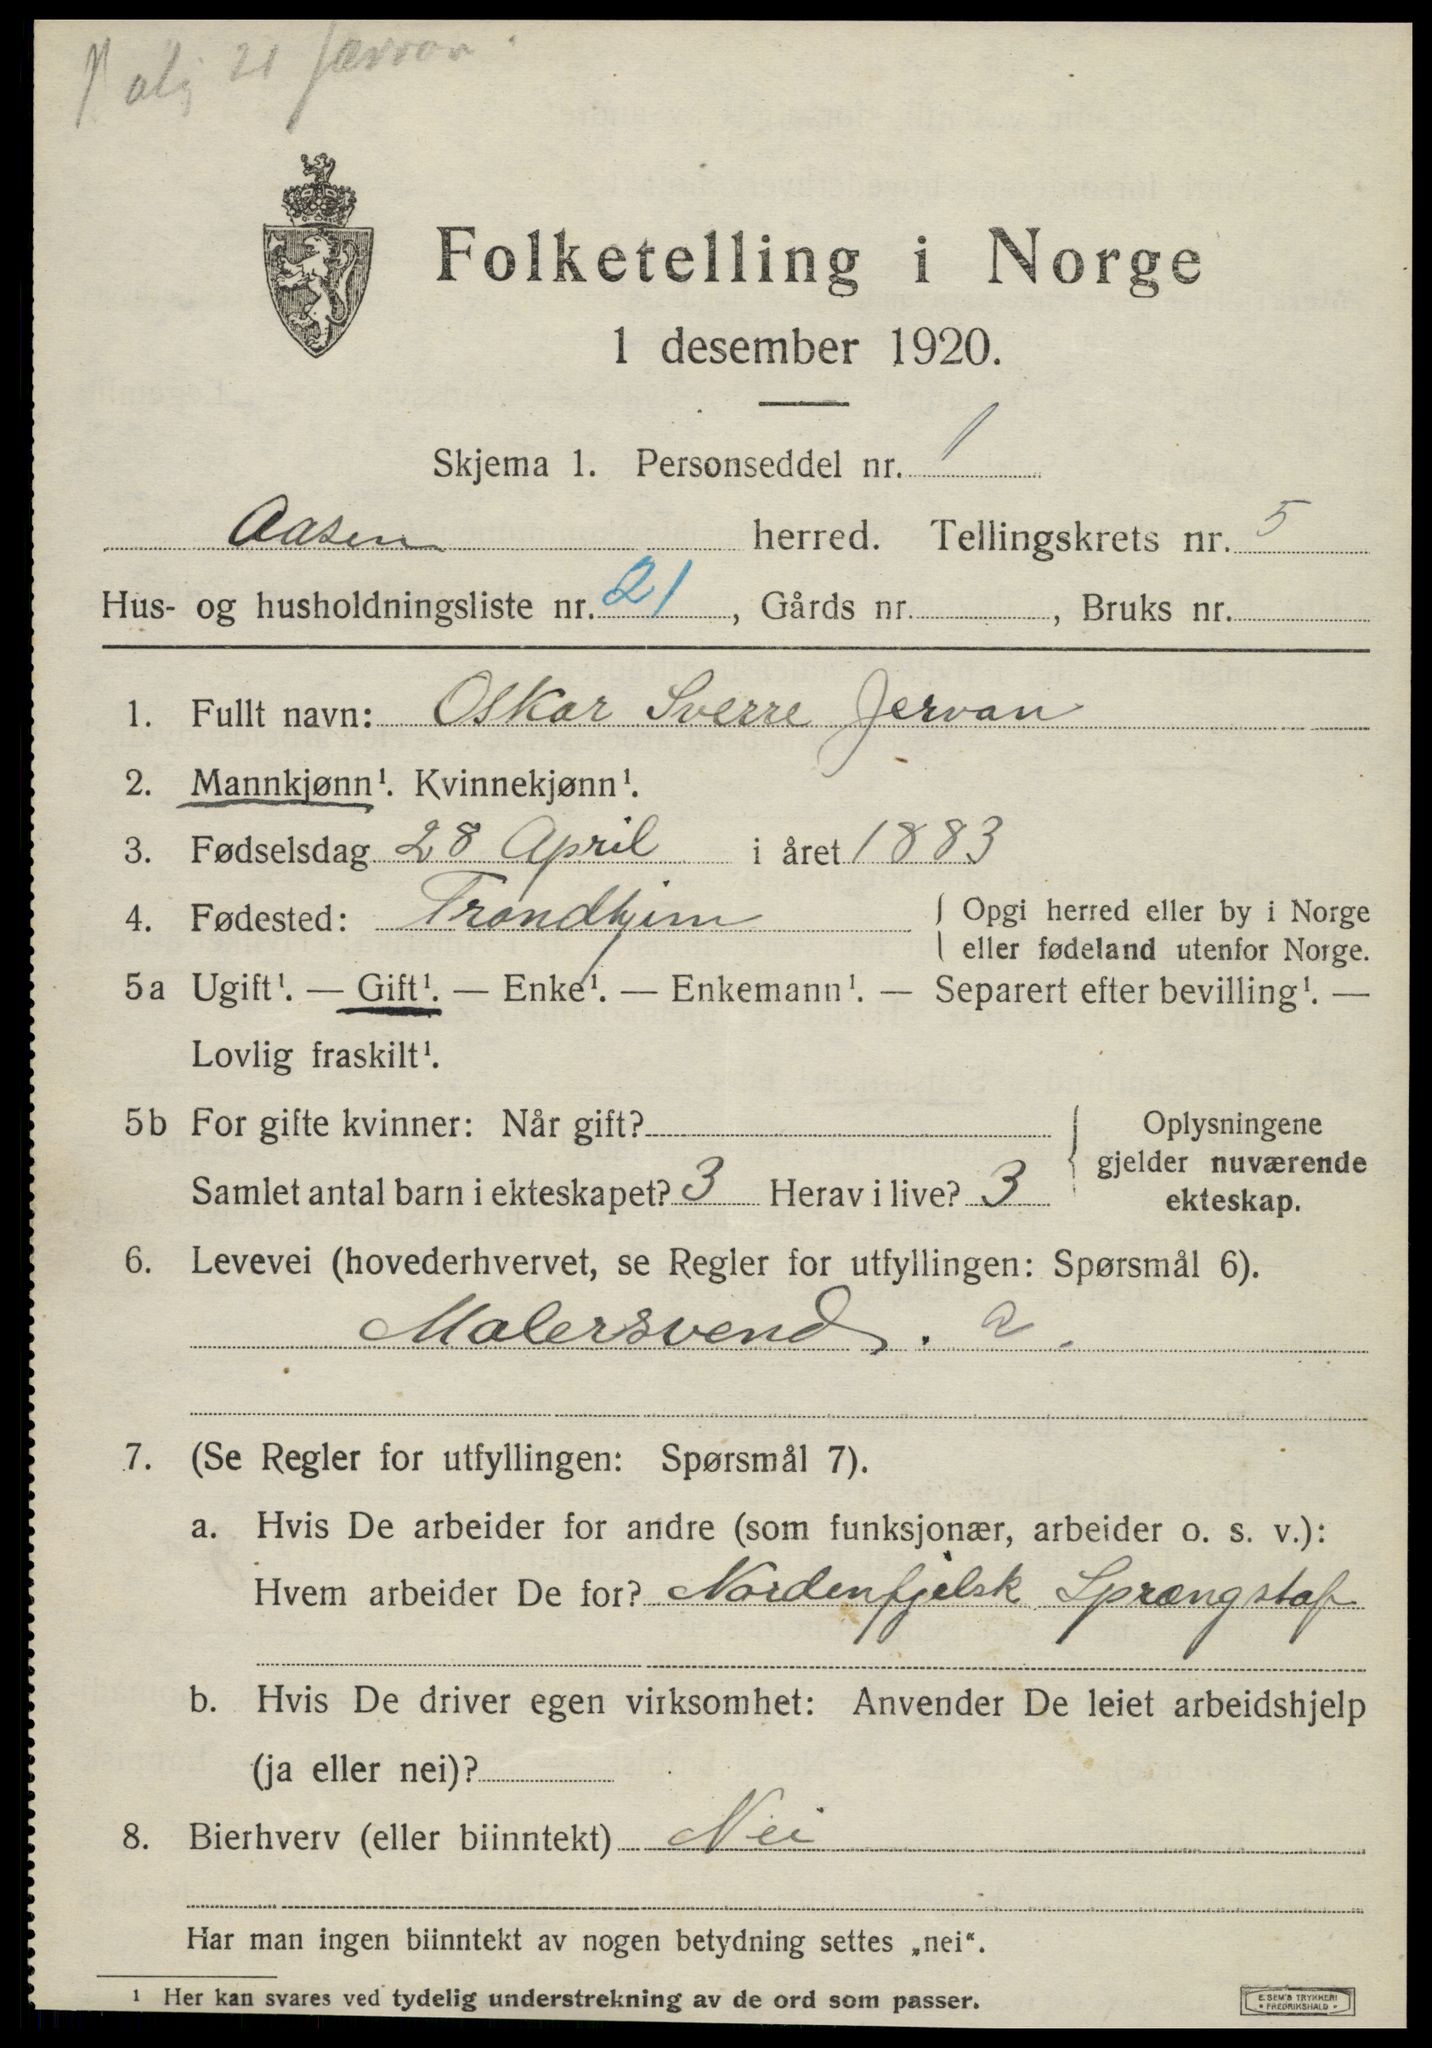 21
Folketelling i Norge
1 desember 1920.
Skjema 1. Personseddel nr. 1
Aasen herred. Tellingskrets nr. 5
Hus- og husholdningsliste nr. 21, Gårds nr. , Bruks nr.
1. Fullt navn: Oskar Sverre Jervan
2. Mannkjønn¹. Kvinnekjønn¹.
3. Fødselsdag 28 April i året 1883
4. Fødested: Trondhjim { Opgi herred eller by i Norge
eller fødeland utenfor Norge.
5a Ugift¹. — Gift¹. — Enke¹. — Enkemann¹. — Separert efter bevilling¹. —
Lovlig fraskilt¹.
5b For gifte kvinner: Når gift? { Oplysningene
gjelder nuværende
Samlet antal barn i ekteskapet? 3 Herav i live? 3
ekteskap.
6. Levevei (hovederhvervet, se Regler for utfyllingen: Spørsmål 6).
Malersvend. a.
7. (Se Regler for utfyllingen: Spørsmål 7).
a. Hvis De arbeider for andre (som funksjonær, arbeider o. s. v.):
Hvem arbeider De for? Nordenfjelsk Sprængstof
b. Hvis De driver egen virksomhet: Anvender De leiet arbeidshjelp
(ja eller nei)?
8. Bierhverv (eller biinntekt) Nei
Har man ingen biinntekt av nogen betydning settes „nei“.
¹ Her kan svares ved tydelig understrekning av de ord som passer.
E. SEM'S TRYKKERI
• FREDRIKSHALD •